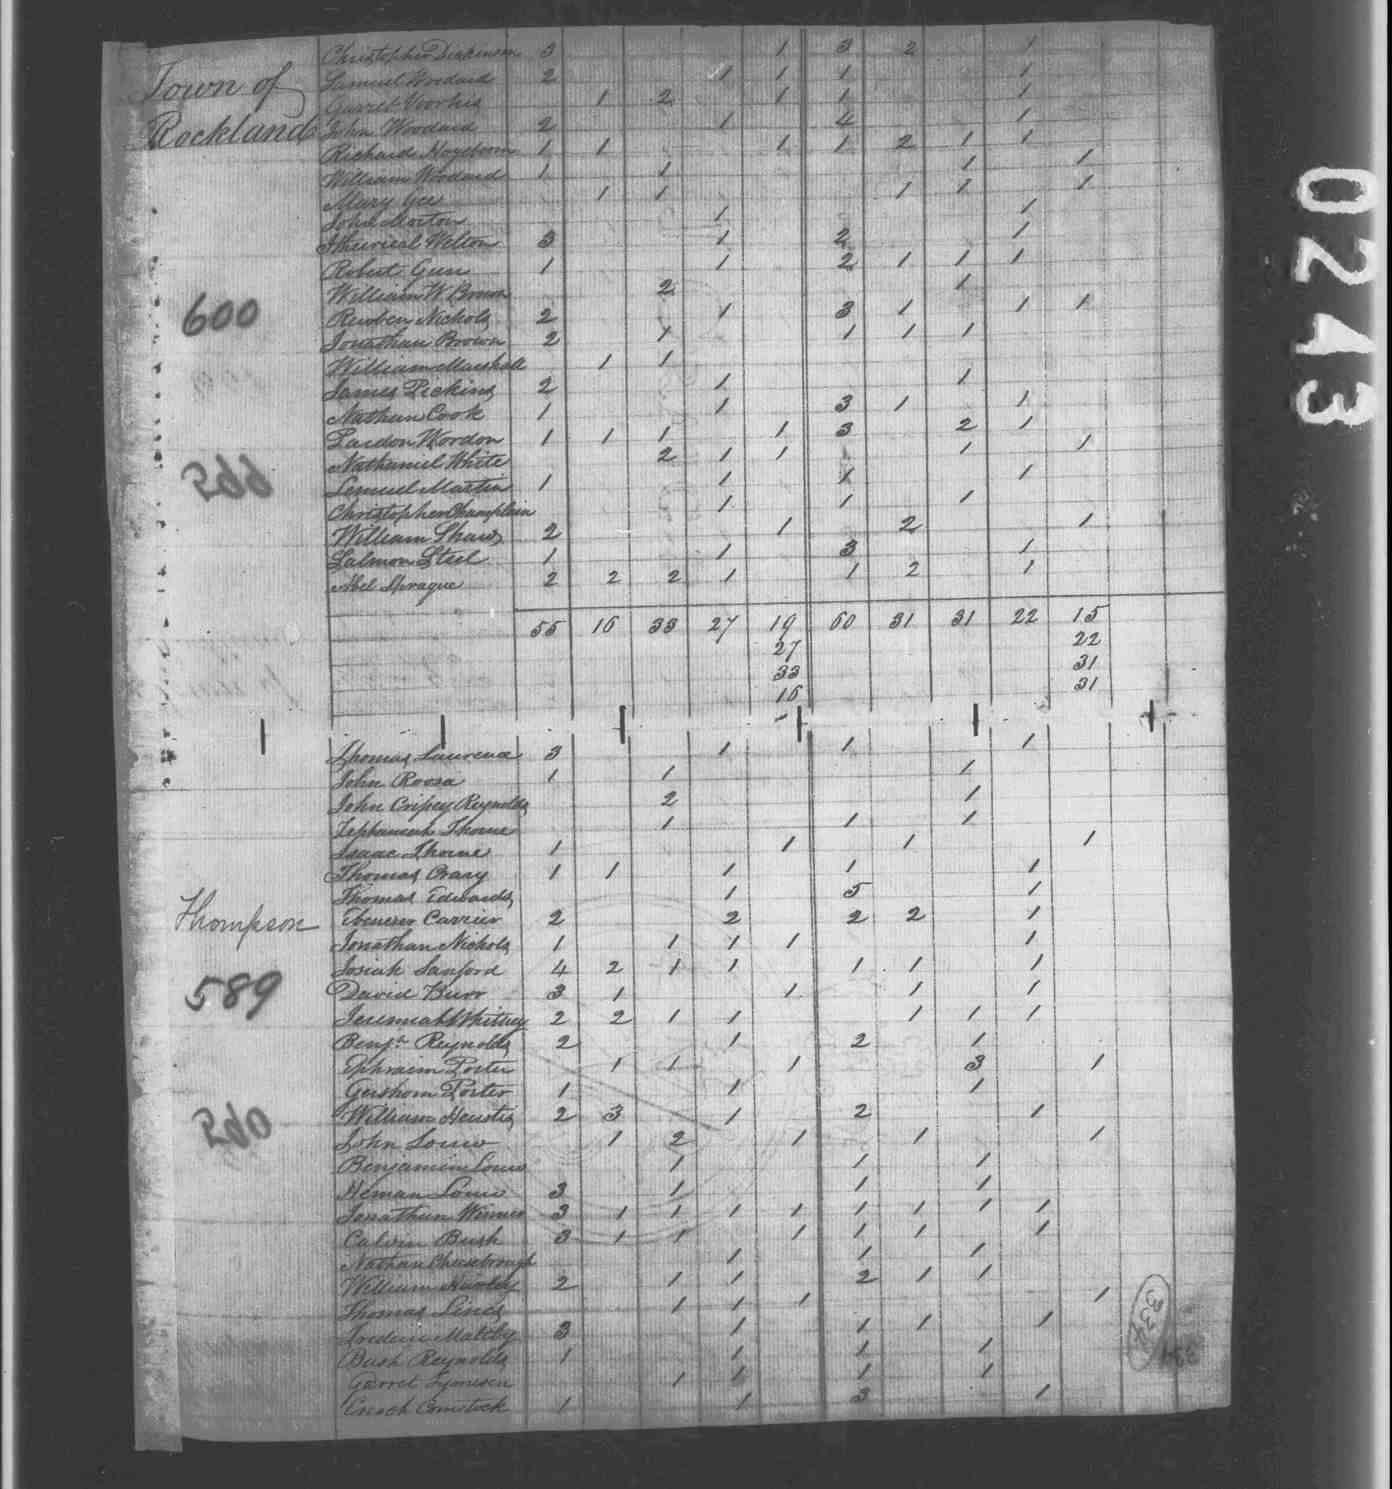 Town of
Rockland
Christopher Dickinson 3 1 3 2 1
Samuel Woodard 2 1 1 1 1
Garret Voorhis 1 2 1 1 1
John Woodard 2 1 4 1
Richard 1 1 1 1 2 1 1
William Woodard 1 1 1 1
Mary Gee 1 1 1 1 1
John Morton 1 1
Welton 3 1 2 1
Robert Gun 1 1 2 1 1 1
William W Brown 2 1
Reuben Nichols 2 1 3 1 1 1
600
Jonathan Brown 2 1 1 1 1
William Marshall 1 1
James Pickins 2 1 1
Nathan Cook 1 1 3 1 1
Pardon Wordon 1 1 1 1 3 2 1
Nathaniel White 2 1 1 1 1
Lemuel Martin 1 1 1 1
Christopher Champlain 1 1 1
William Shaw 2 1 2 1
Salmon Steel 1 1 3 1
Abel Sprague 2 2 2 1 1 2 1
55 16 33 27 19 60 31 31 22 15
27 22
33 31
16 31
Thomas Laurence 3 1 1 1
John Roosa 1 1 1
John Cripey Reynolds 2 1
Zephaniah Thorne 1 1 1
Isaac Thorne 1 1 1 1
Thomas Crary 1 1 1 1 1
Thomas Edwards 1 5 1
Thompson
Ebenezer Carrier 2 2 2 2 1
Jonathan Nichols 1 1 1 1 1
Josiah Sanford 4 2 1 1 1 1 1
589
David Burr 3 1 1 1 1
Jeremiah Whitney 2 2 1 1 1 1 1
Benjn Reynolds 2 1 2 1
Ephraim Porter 1 1 1 3 1
Gershom Porter 1 1 1
William Heustis 2 3 1 2 1
John 1 2 1 1 1
Benjamin 1 1 1
Heman 3 1 1 1
Jonathan Winner 3 1 1 1 1 1 1 1 1
Calvin Bush 3 1 1 1 1 1 1
Nathan Cheesebrough 1 1 1
William 2 1 1 2 1 1
Thomas Lines 1 1 1 1
Maltby 3 1 1 1 1
Bush Reynolds 1 1 1 1
Garret 1 1 1 1
Enoch Comstock 1 1 3 1
334
0243